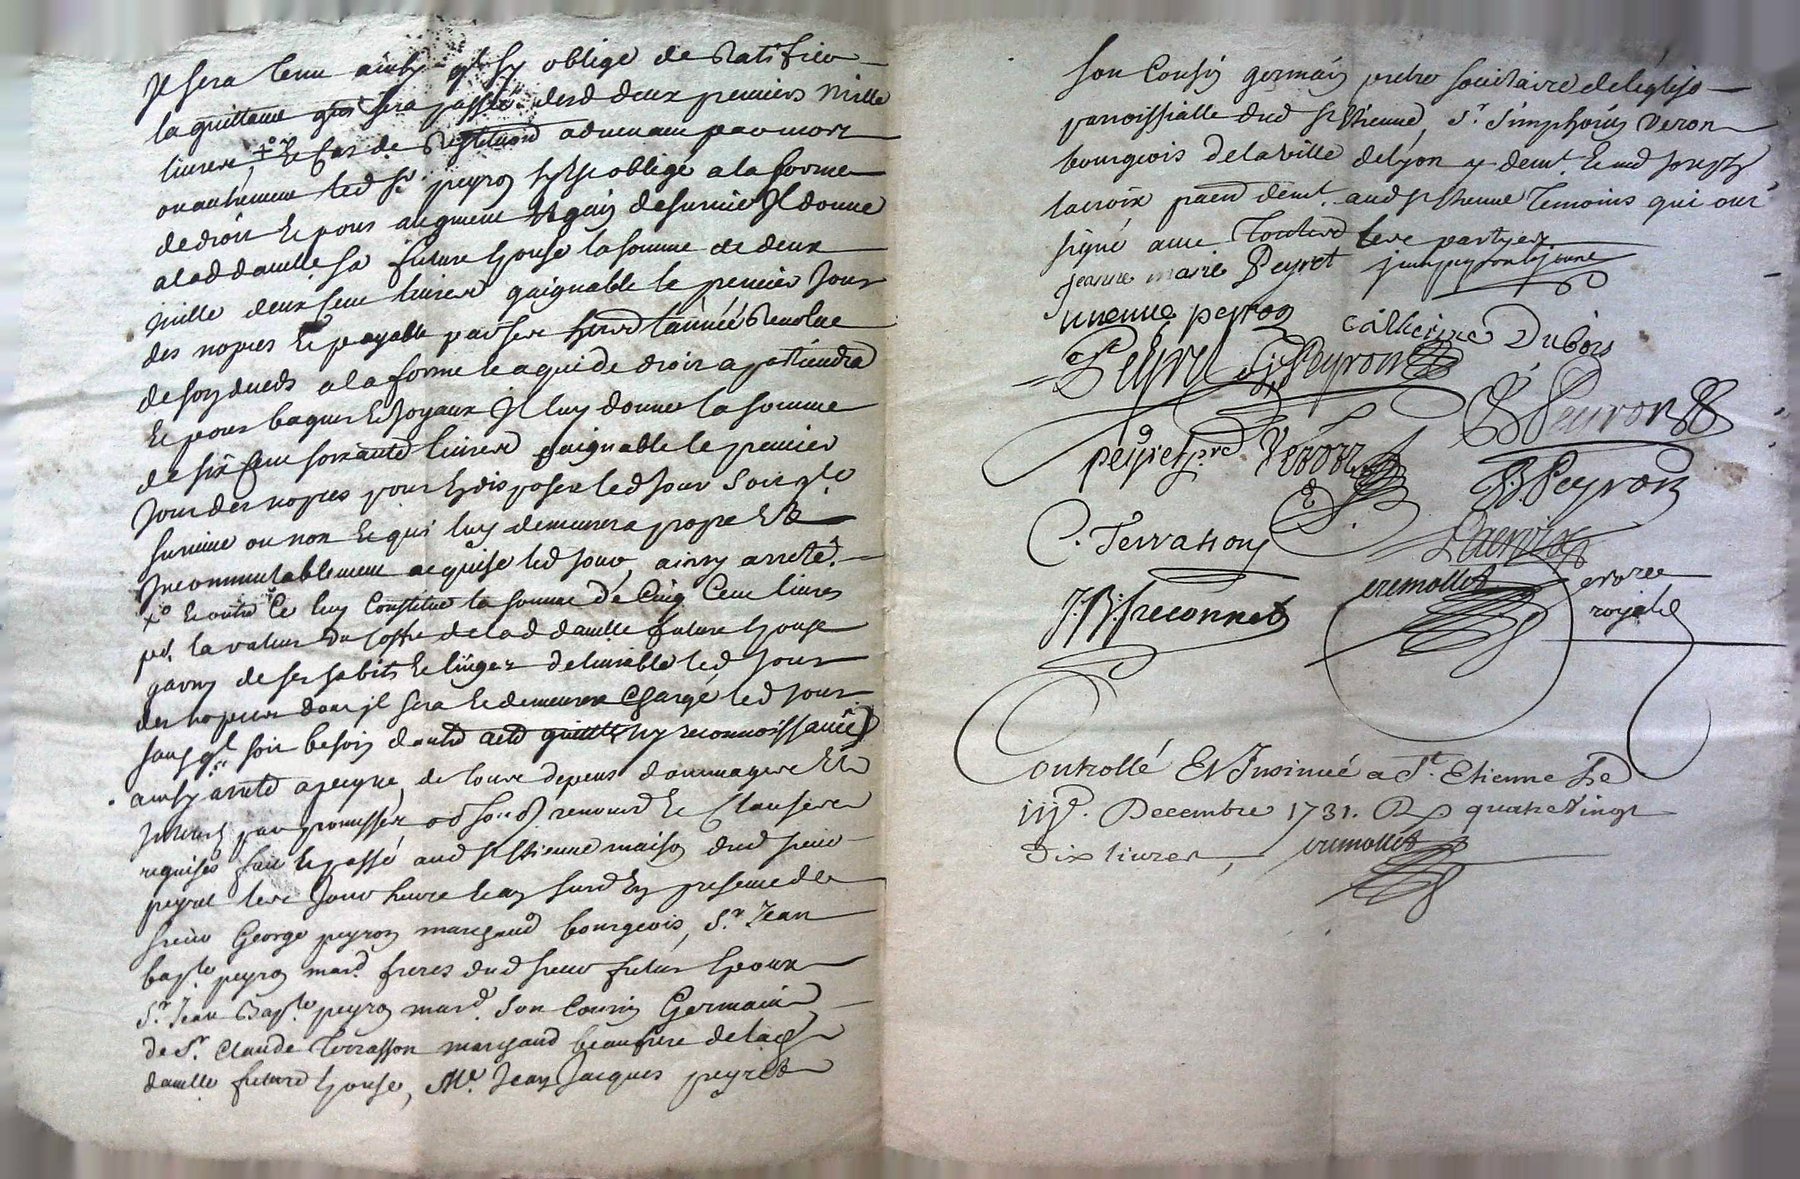 Il sera tenu ainsy qu'il sy oblige de Ratifier
la quittance qui sera passée desd deux premiers mille
livres, Le cas de Restitution advenant par mort
ou autrement led Sr peyron sy est obligé a la forme
de droit Et pour augment Et gain de survie Il donne
alad dauelle sa future Epouse la somme de deux
mille deux cent livres gaignable le premier Jour
des nopces Et payable par ses hoirs l'année Revolue
de son deceds a la forme Et a qui de droit apartiendra
Et pour bagues Et Joyaux Il luy donne la somme
de six cent soixante livres gaignable le premier
Jour des nopces pour En disposer led Jour soit qle
survive ou non Et qui luy demeurera propre Et
Incommutablement acquise led Jour ainsy arreté.
Et outre Ce luy Constitue la somme de Cinq Cent livres
pr. la valeur du Coffre de lad dauelle future Epouse
garny de ses habits Et linges delivrable led Jour
des nopces dont il sera Et demeurera Chargé led Jour
sans ql soit besoin d'autre acte quittance ny reconnoissance
ainsy arreté a peyne de tous depens dommages Et
Interests par promesses renonces Et Clauses
requises fait Et passé aud St Etienne maison dud sieur
peyret les Jour heure Et an susd En presence de
sieur George peyron marchand bourgeois, Sr. Jean
bapte peyron mard. freres dud sieur futur Epoux
Sr. Jean Bapte peyron mard. son Cousin Germain
de Sr. Claude Terrasson marchand beaufrere de lad
dauelle future Epouse, Me. Jean Jacques peyret
son Cousin germain prebre societaire de l'eglise
parroissialle dud St Etienne, Sr. Simphorien veron
bourgeois de la ville de Lyon y demt. Et md Joseph
lacroix demt. aud St Etienne Temoins qui ont
signé avec Toutes les partyes
jeanne marie Peyret jean peyron lejeune
peyron
catherine Dubois
Peyret Peyron
Peyron
peyret pre Veron
B Peyron
C. Terrasson
Lacroix
J. B. freconnet
cremollet notre
royal
Controllé Et Insinué a St. Etienne Le
iije. Decembre 1731. Rx quatre Vingt
Dix livres, cremollet